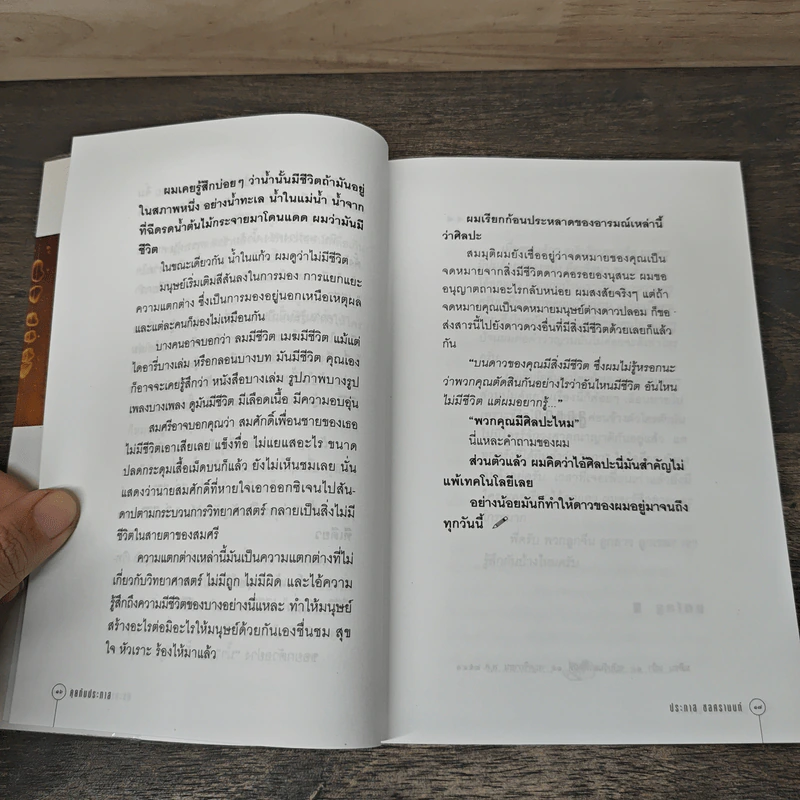 ผมเคยรู้สึกบ่อยๆ ว่าน้ำนั้นมีชีวิตถ้ามันอยู่
ในสภาพหนึ่ง อย่างน้ำทะเล น้ำในแม่น้ำ น้ำจาก
ที่ฉีดรดน้ำต้นไม้กระจายมาโดนแดด ผมว่ามันมี
ชีวิต
ในขณะเดียวกัน น้ำในแก้ว ผมดูว่าไม่มีชีวิต
มนุษย์เริ่มเติมสีสันลงในการมอง การแยกแยะ
ความแตกต่าง ซึ่งเป็นการมองอยู่นอกเหนือเหตุผล
และแต่ละคนก็มองไม่เหมือนกัน
บางคนอาจบอกว่า ลมมีชีวิต เมฆมีชีวิต แม้แต่
ไดอารี่บางเล่ม หรือกลอนบางบท มันมีชีวิต คุณเอง
ก็อาจจะเคยรู้สึกว่า หนังสือบางเล่ม รูปภาพบางรูป
เพลงบางเพลง ดูมันมีชีวิต มีเลือดเนื้อ มีความอบอุ่น
สมศรีอาจบอกคุณว่า สมศักดิ์เพื่อนชายของเธอ
ไม่มีชีวิตเอาเสียเลย แข็งทื่อ ไม่แยแสอะไร ขนาด
ปลดกระดุมเสื้อเม็ดบนก็แล้ว ยังไม่เห็นชมเลย นั่น
แสดงว่านายสมศักดิ์ที่หายใจเอาออกซิเจนไปสัน-
ดาปตามกระบวนการวิทยาศาสตร์ กลายเป็นสิ่งไม่มี
ชีวิตในสายตาของสมศรี
ความแตกต่างเหล่านี้มันเป็นความแตกต่างที่ไม่
เกี่ยวกับวิทยาศาสตร์ ไม่มีถูก ไม่มีผิด และไอ้ความ
รู้สึกถึงความมีชีวิตของบางอย่างนี่แหละ ทำให้มนุษย์
สร้างอะไรต่อมิอะไรให้มนุษย์ด้วยกันเองชื่นชม สุข
ใจ หัวเราะ ร้องไห้มาแล้ว
๑๖ คุยกับประภาส
ผมเรียกก้อนประหลาดของอารมณ์เหล่านี้
ว่าศิลปะ
สมมุติผมยังเชื่ออยู่ว่าจดหมายของคุณเป็น
จดหมายจากสิ่งมีชีวิตดาวคอรอยองนุสนะ ผมขอ
อนุญาตถามอะไรกลับหน่อย ผมสงสัยจริงๆ แต่ถ้า
จดหมายคุณเป็นจดหมายมนุษย์ต่างดาวปลอม ก็ขอ
ส่งสารนี้ไปยังดาวดวงอื่นที่มีสิ่งมีชีวิตด้วยเลยก็แล้ว
กัน
“บนดาวของคุณมีสิ่งมีชีวิต ซึ่งผมไม่รู้หรอกนะ
ว่าพวกคุณตัดสินกันอย่างไรว่าอันไหนมีชีวิต อันไหน
ไม่มีชีวิต แต่ผมอยากรู้...”
“พวกคุณมีศิลปะไหม”
นี่แหละคำถามของผม
ส่วนตัวแล้ว ผมคิดว่าไอ้ศิลปะนี่มันสำคัญไม่
แพ้เทคโนโลยีเลย
อย่างน้อยมันก็ทำให้ดาวของผมอยู่มาจนถึง
ทุกวันนี้
ประภาส ชลศรานนท์ ๑๗